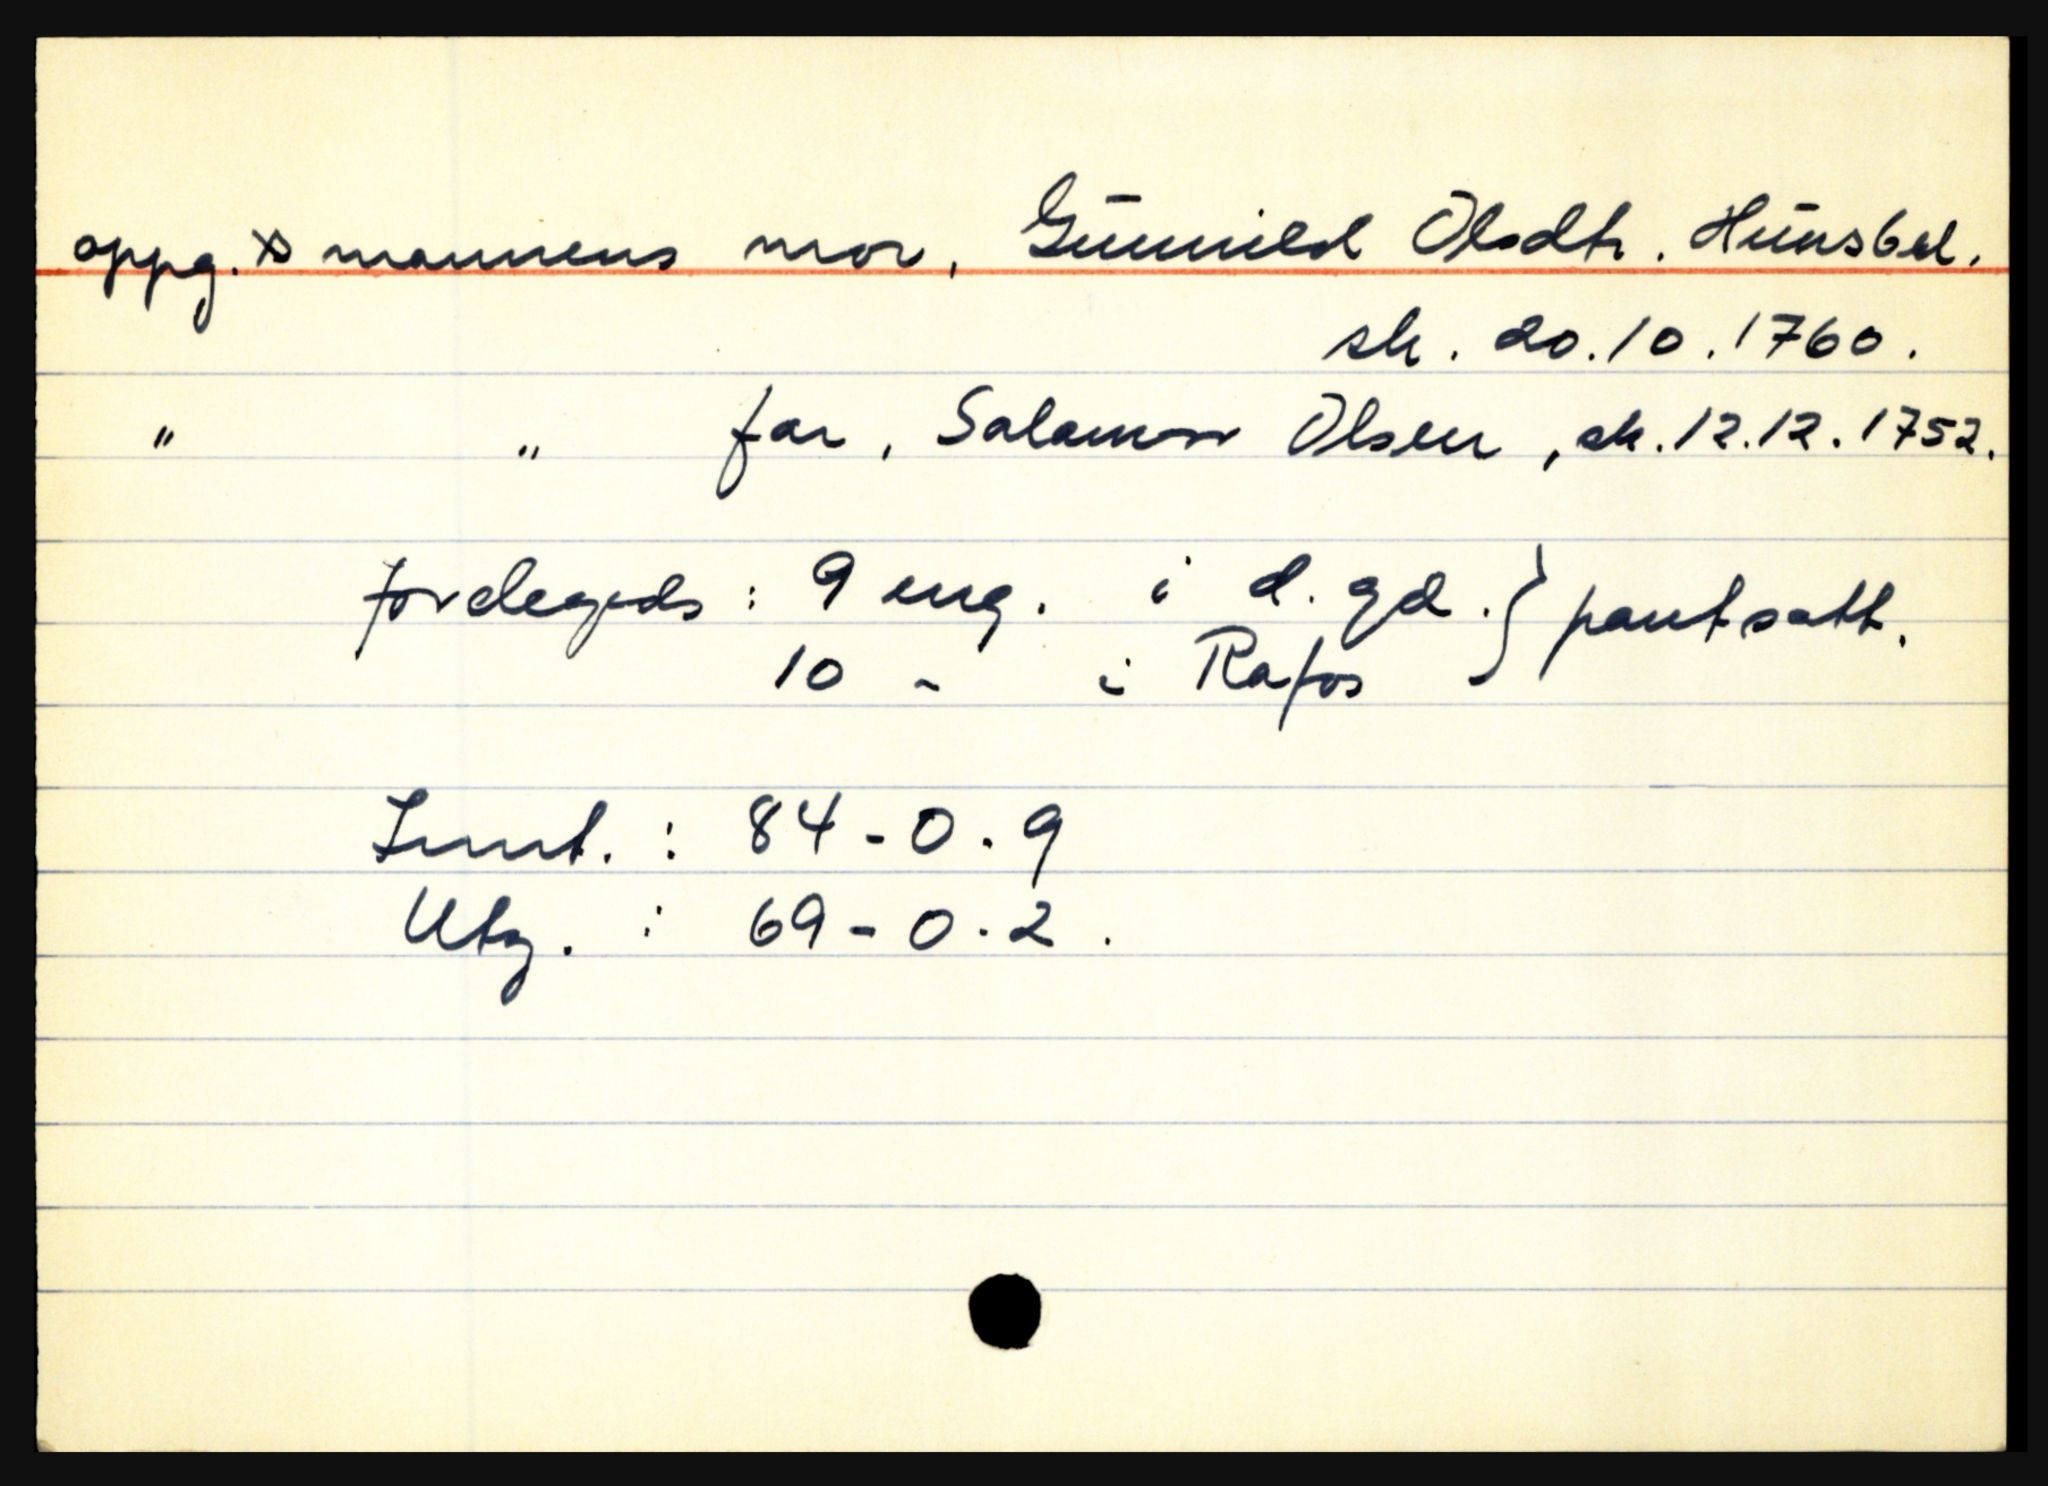 oppg. mannens mor, Gunnild Olsdtr. Hunsbed.
sk. 20.10.1760.
" " far, Salamon Olsen, sk. 12.12.1752.
Jordegods: 9 eng. i d. gd. } pantsatt.
10 - i Rafos
Innt. : 84 - 0 . 9
Utg. : 69 - 0 . 2 .